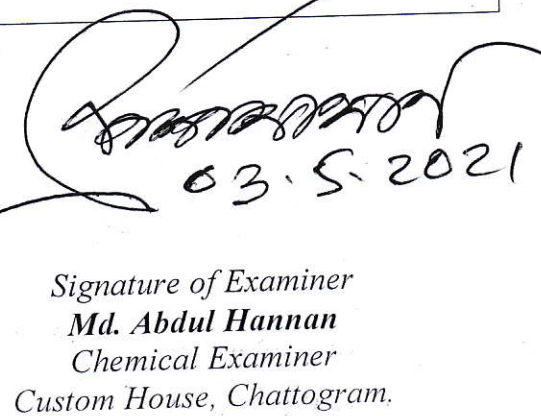 03.5.2021
Signature of Examiner
Md. Abdul Hannan
Chemical Examiner
Custom House, Chattogram.